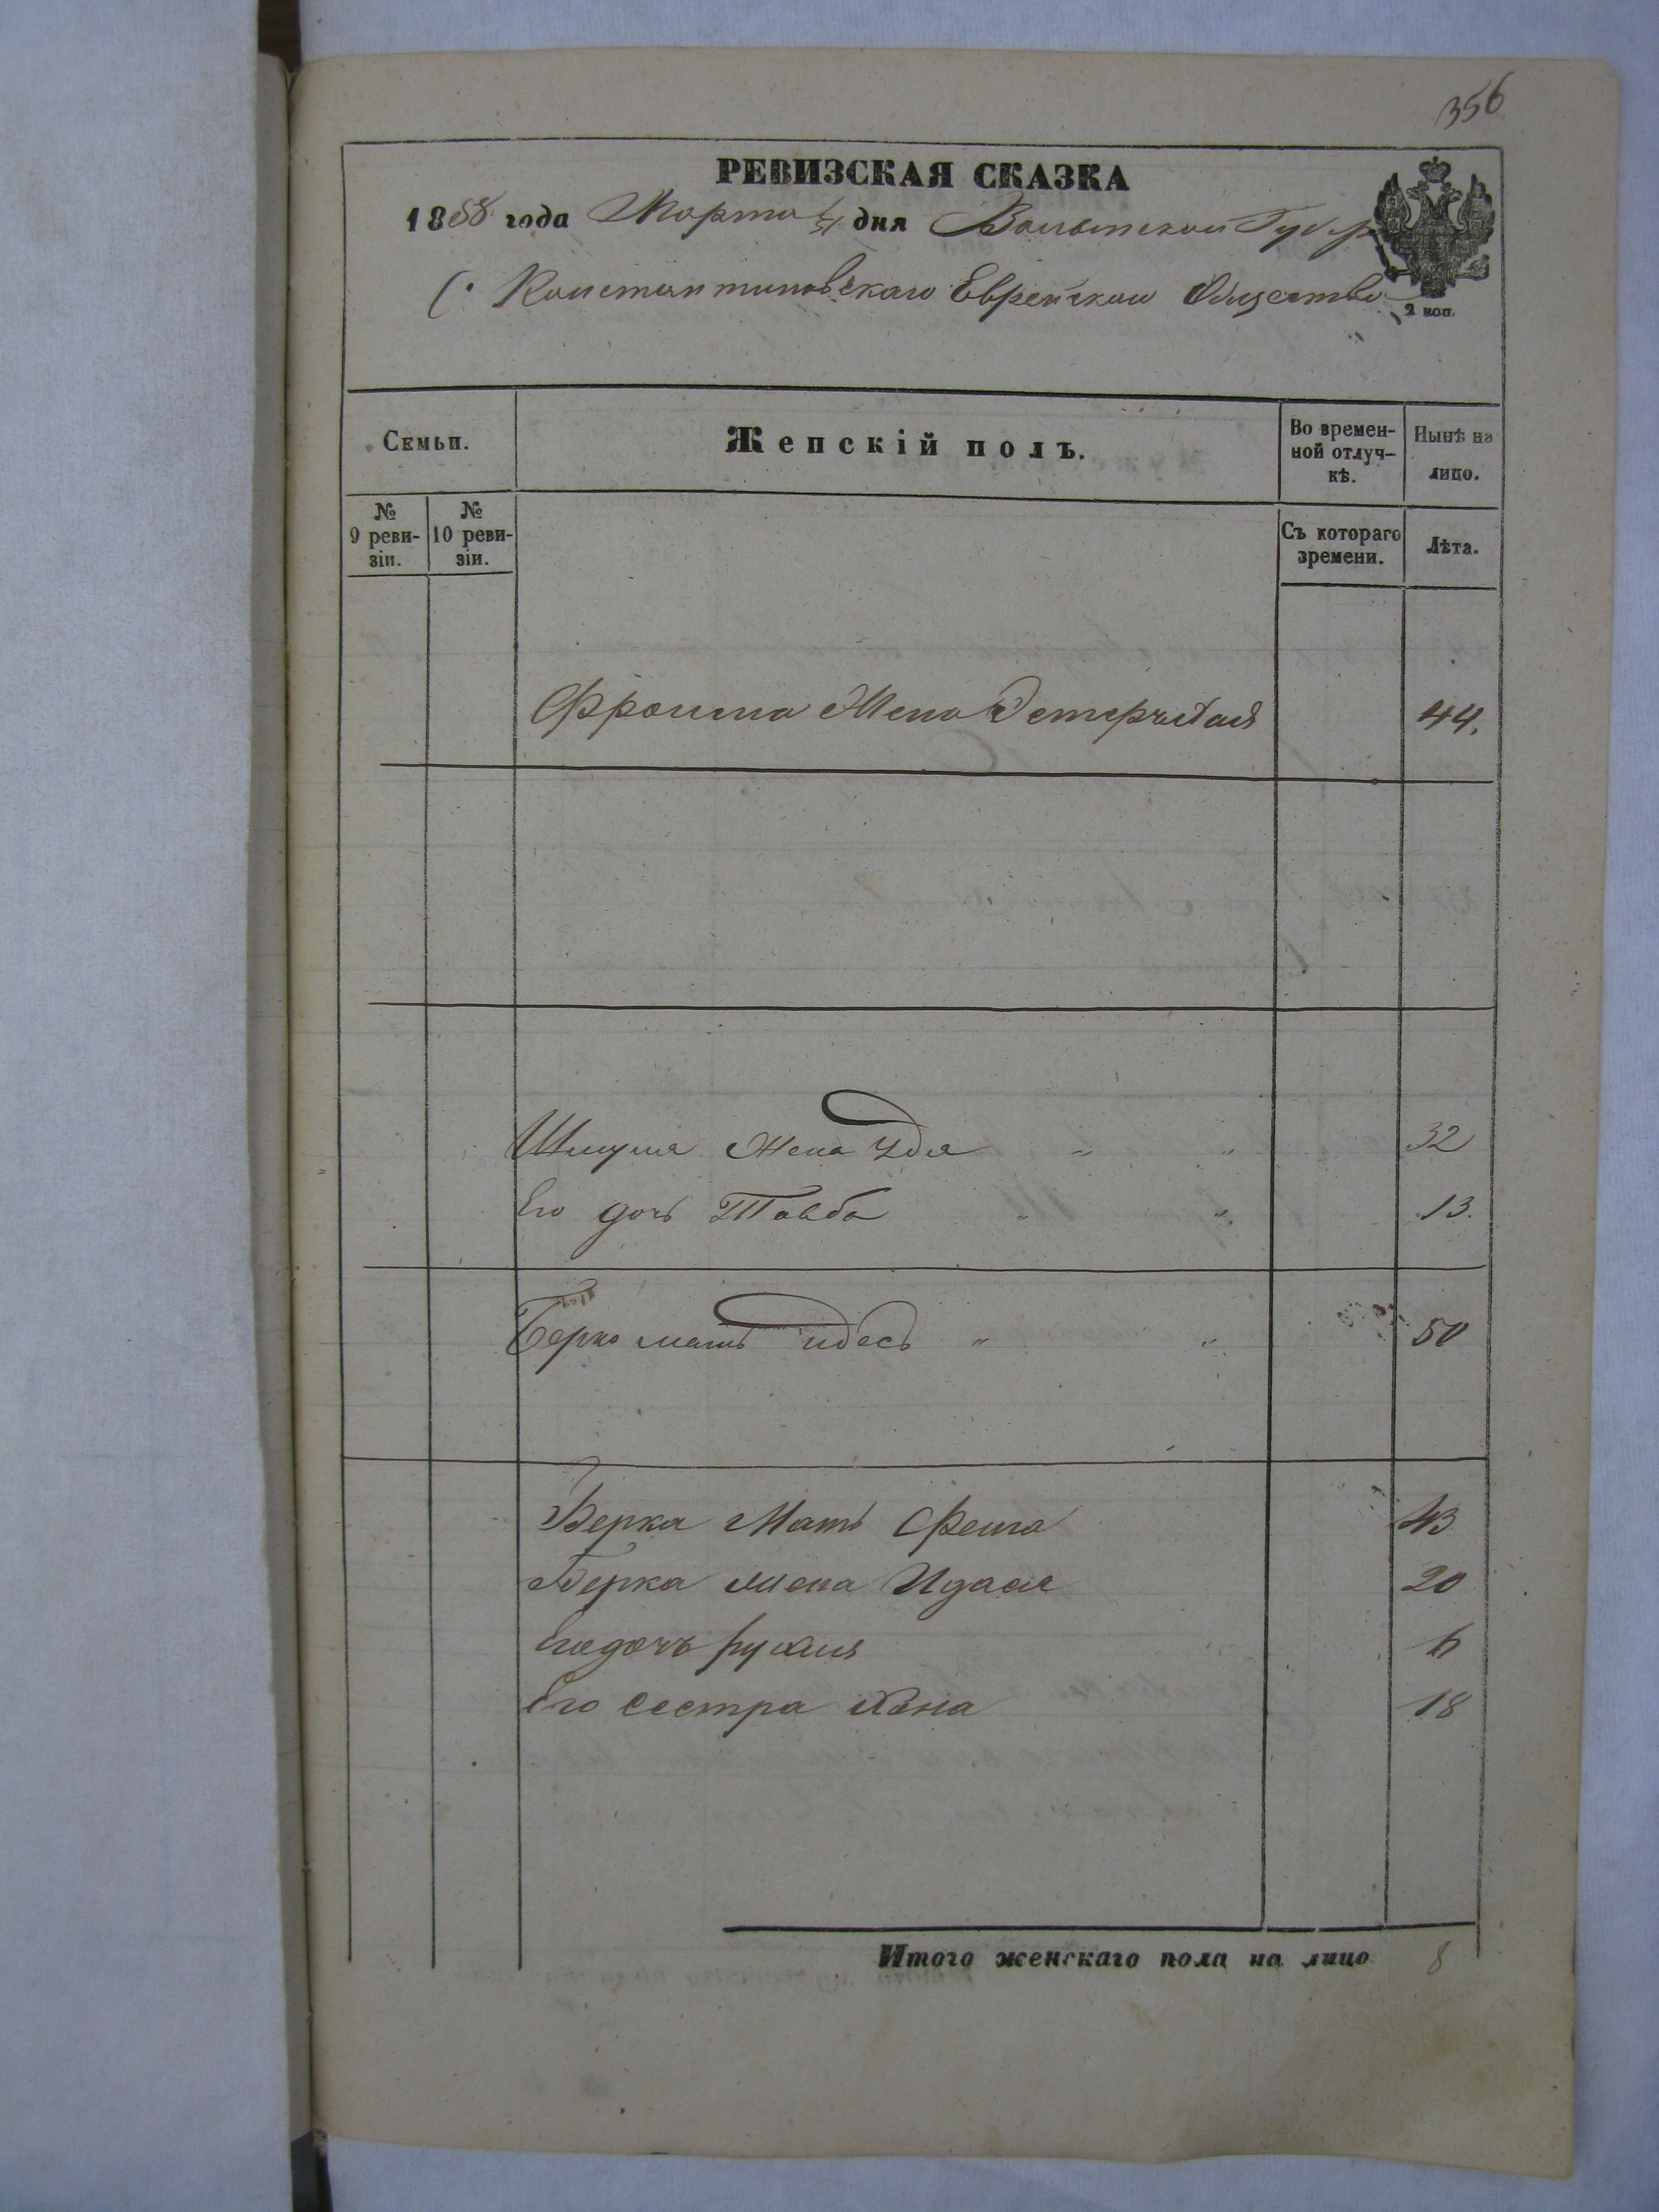 356
РЕВИЗСКАЯ СКАЗКА
1858 года Марта дня Волынской Губер
С. Константиновскаго Еврейскаго Общества
2 коп.
Семьи.
Женскій полъ.
Во времен-
ной отлуч-
кѣ.
Нынѣ на
лицо.
№
9 реви-
зіи.
№
10 реви-
зіи.
Съ котораго
времени.
Лѣта.
Фроима Жена Эстерхая 44.
Шмуля Жена Удя " " 32
Его дочь Товба " " 13.
Берко мать Идесъ " " 50
Берка Мать Фейга 43
Берка жена Идася 20
Его дочь Рухля
Его сестра Хана 18
Итого женскаго пола на лицо 8